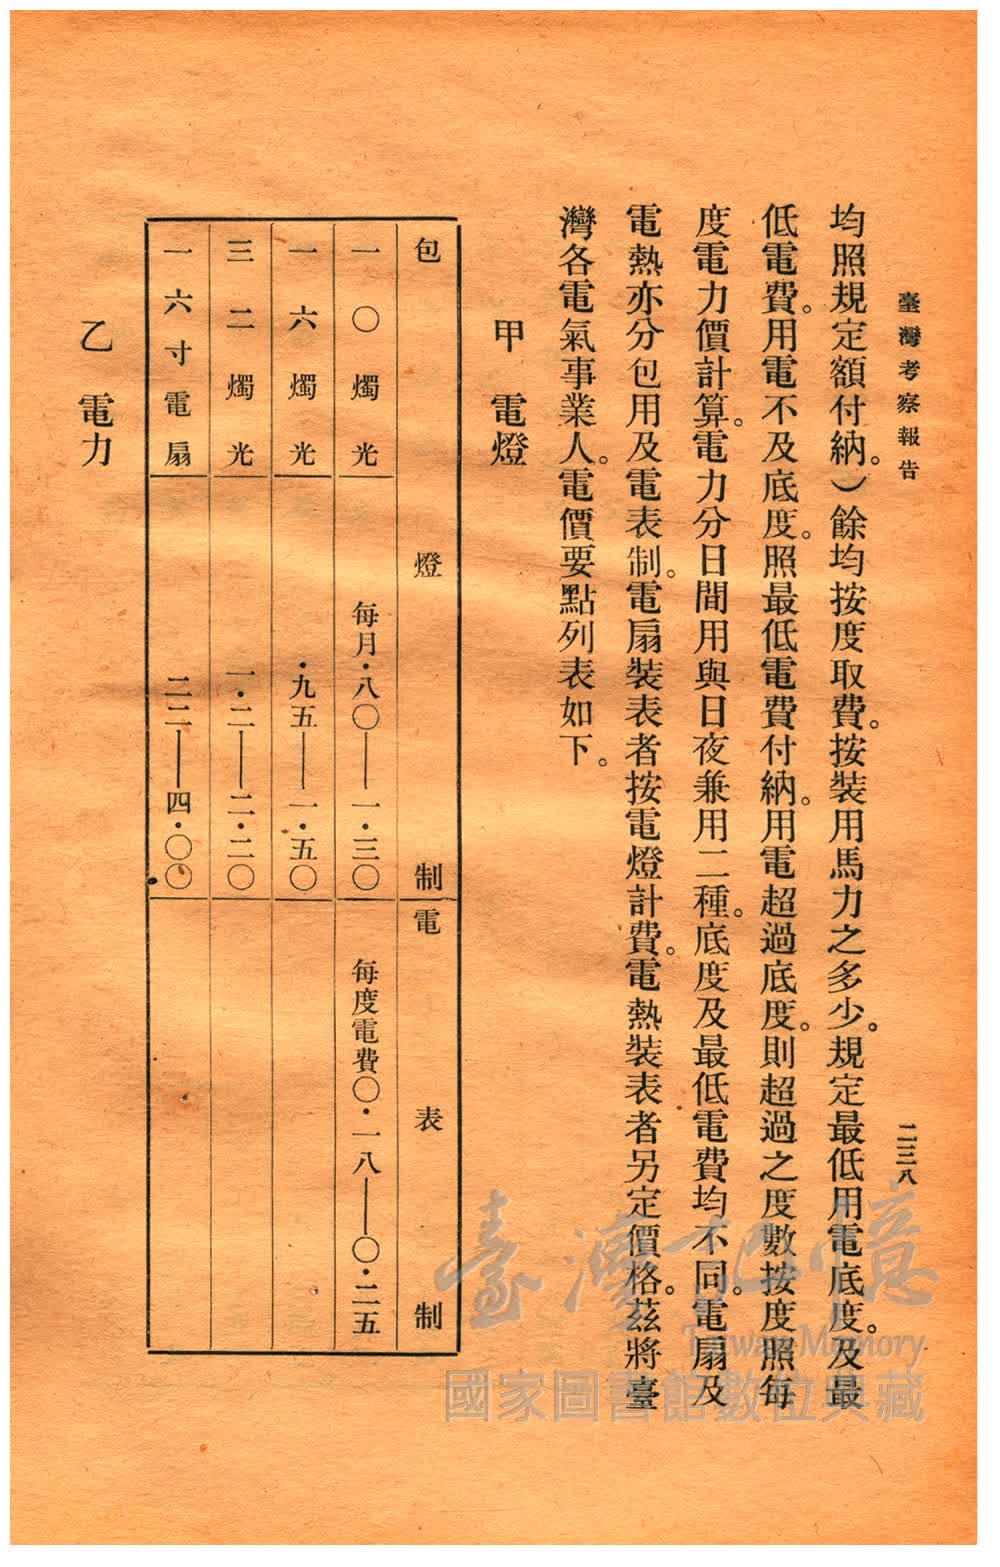 臺灣考察報告
二三八
均照規定額付納。）餘均按度取費。按裝用馬力之多少。規定最低用電底度。及最
低電費。用電不及底度。照最低電費付納。用電超過底度。則超過之度數按度照每
度電力價計算。電力分日間用與日夜兼用二種。底度及最低電費均不同。電扇及
電熱亦分包用及電表制。電扇裝表者按電燈計費。電熱裝表者另定價格。茲將臺
灣各電氣事業人。電價要點列表如下。
甲 電燈
包燈制 電表制
一〇燭光 每月·八〇——一·三〇 每度電費〇·一八——〇·二五
一六燭光 ·九五——一·五〇
三二燭光 一·二——二·二〇
一六寸電扇 二二——四·〇〇
乙 電力
臺灣記憶
Taiwan Memory
國家圖書館數位典藏